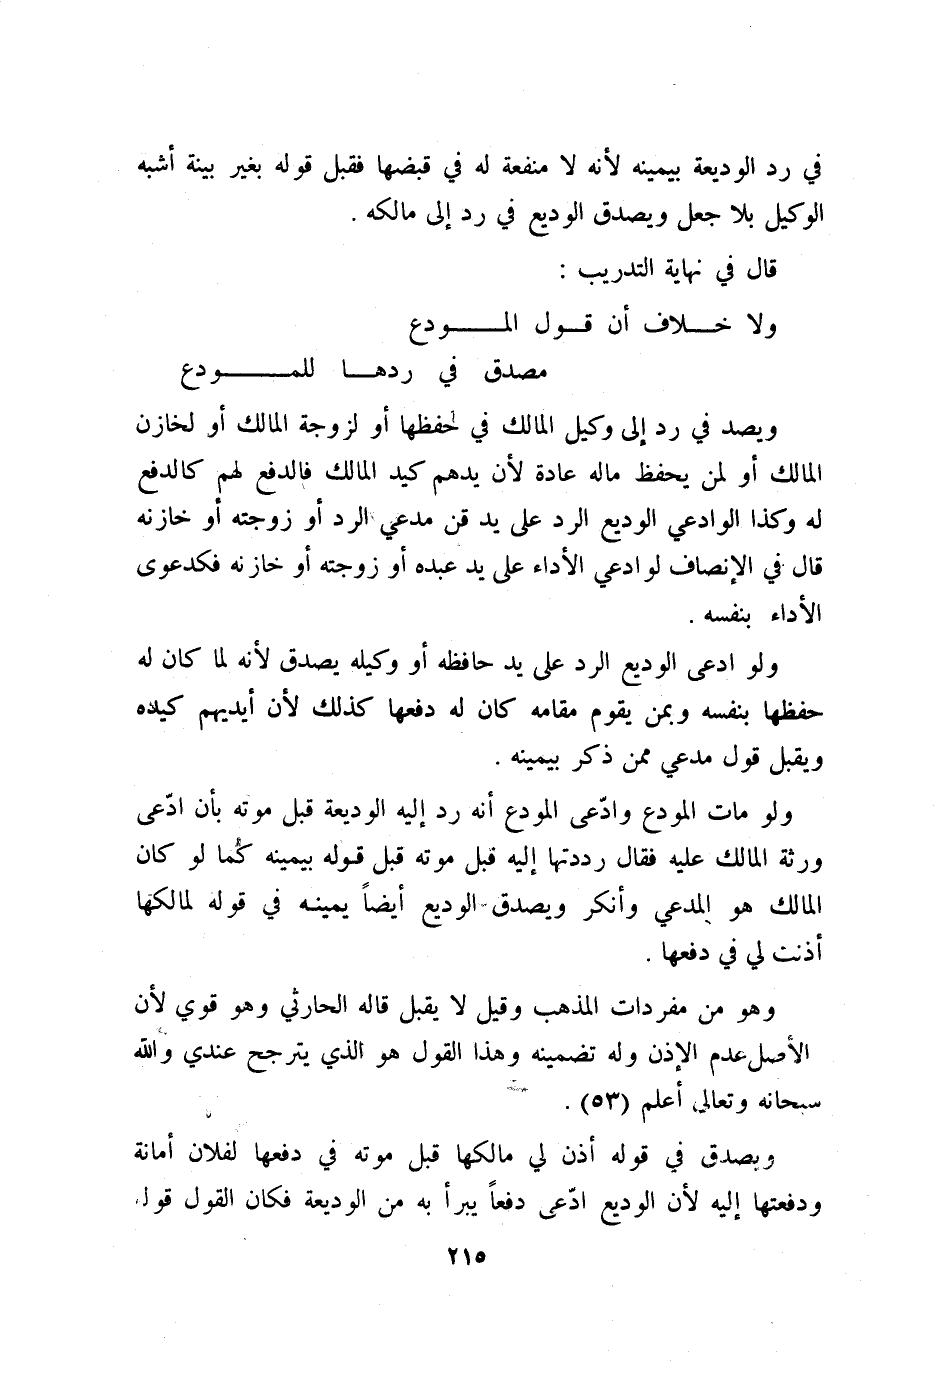 في رد الوديعة بيمينه لأنه لا منفعة له في قبضها فقبل قوله بغير بينة أشبه
الوكيل بلا جعل ويصدق الوديع في رد إلى مالكه .
قال في نهاية التدريب :
ولا خلاف أن قول المودع
مصدق في ردها للمودع
ويصد في رد إلى وكيل المالك في حفظها أو لزوجة المالك أو لخازن
المالك أو لمن يحفظ ماله عادة لأن يدهم كيد المالك فالدفع لهم كالدفع
له وكذا الوادعي الوديع الرد على يد قن مدعي الرد أو زوجته أو خازنه
قال في الإنصاف لو ادعي الأداء على يد عبده أو زوجته أو خازنه فكدعوى
الأداء بنفسه .
ولو ادعى الوديع الرد على يد حافظه أو وكيله يصدق لأنه لما كان له
حفظها بنفسه وبمن يقوم مقامه كان له دفعها كذلك لأن أيديهم كيده
ويقبل قول مدعي ممن ذكر بيمينه .
ولو مات المودع وادّعى المودع أنه رد إليه الوديعة قبل موته بأن ادّعى
ورثة المالك عليه فقال رددتها إليه قبل موته قبل قوله بيمينه كما لو كان
المالك هو المدعي وأنكر ويصدق الوديع أيضاً يمينه في قوله لمالكها
أذنت لي في دفعها .
وهو من مفردات المذهب وقيل لا يقبل قاله الحارثي وهو قوي لأن
الأصل عدم الإذن وله تضمينه وهذا القول هو الذي يترجح عندي والله
سبحانه وتعالى أعلم (٥٣) .
ويصدق في قوله أذن لي مالكها قبل موته في دفعها لفلان أمانة
ودفعتها إليه لأن الوديع ادّعى دفعاً يبرأ به من الوديعة فكان القول قوله
٢١٥